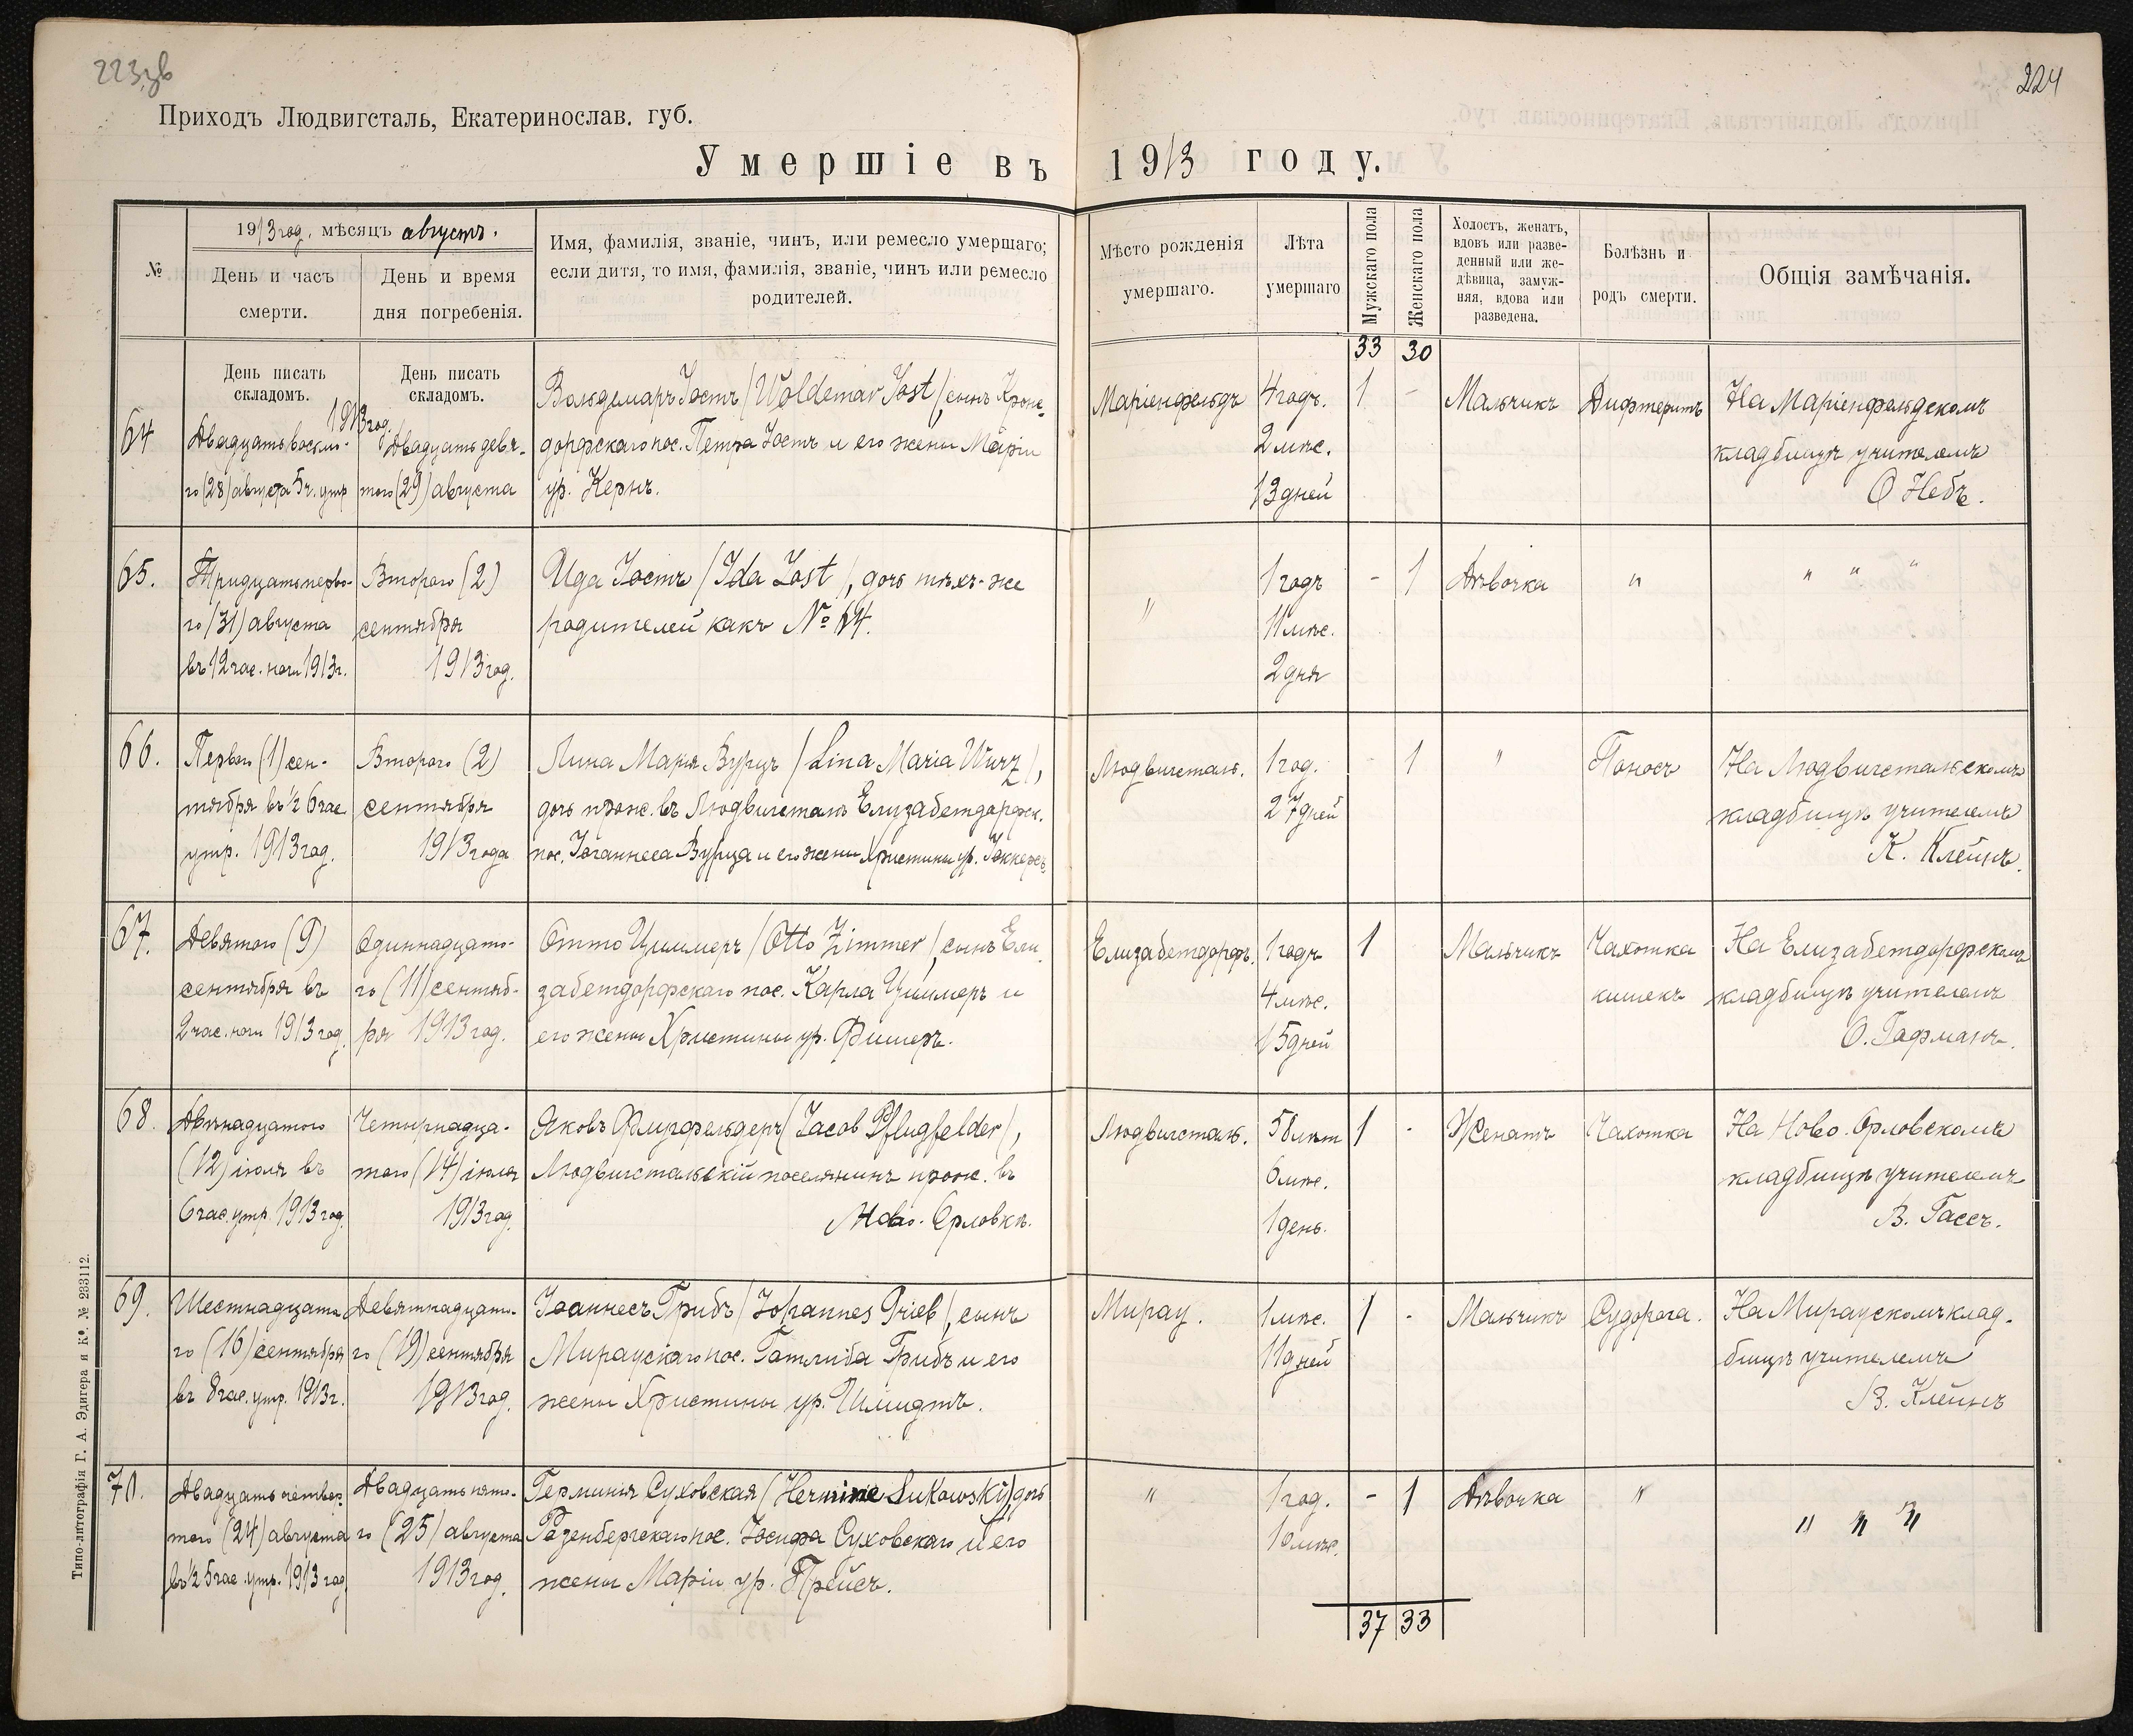 223зв
224
Приходъ Людвигсталь, Екатеринослав. губ.
Умершіе въ 1913 году.
№
1913 год. мѣсяцъ августъ.
День и часъ
смерти.
День и время
дня погребенія.
Имя, фамилія, званіе, чинъ, или ремесло умершаго;
если дитя, то имя, фамилія, званіе, чинъ или ремесло
родителей.
Мѣсто рожденія
умершаго.
Лѣта
умершаго
Мужскаго пола
Женскаго пола
Холостъ, женатъ,
вдовъ или разве-
денный или же-
дѣвица, замуж-
няя, вдова или
разведена.
Болѣзнь и
родъ смерти.
Общія замѣчанія.
33 30
День писать
складомъ.
День писать
складомъ.
64
Двадцать восьмо-
го (28) августа 5 ч. утр
1913 год.
Двадцать девя-
таго (29) августа
Вольдемаръ Іостъ (Woldemar Jost), сынъ Кронс-
дорфскаго пос. Петра Іостъ и его жены Маріи
ур. Кернъ.
Маріенфельдъ
4 годъ.
2 мѣс.
13 дней
1 -
Мальчикъ
Дифтеритъ
На Маріенфельдскомъ
кладбищѣ учителемъ
О Небъ.
65.
Тридцать перво-
го (31) августа
въ 12 час. ночи 1913 г.
Второго (2)
сентября
1913 год.
Ида Іостъ (Ida Jost), дочь тѣхъ-же
родителей какъ № 64.
"
1 годъ
11 мѣс.
2 дня
- 1
Дѣвочка
"
" " "
66.
Перваго (1) сен-
тября въ ½ 6 час.
утр. 1913 год.
Второго (2)
сентября
1913 года
Лина Марія Вурцъ (Lina Maria Wurz),
дочь прож. въ Людвигсталь Елизабетдорфск.
пос. Іоганнеса Вурца и его жены Христины ур.
Людвигсталь.
1 год.
27 дней
- 1
"
Поносъ
На Людвигстальскомъ
кладбищѣ учителемъ
К. Клейнъ.
67.
Девятого (9)
сентября въ
2 час. ночи 1913 год.
Одиннадцато-
го (11) сентяб-
ря 1913 год.
Отто Циммеръ (Otto Zimmer), сынъ Ели-
забетдорфскаго пос. Карла Циммеръ и
его жены Христины ур. Фишеръ.
Елизабетдорфъ.
1 годъ
4 мѣс.
15 дней
1
Мальчикъ
Чахотка
кишекъ
На Елизабетдорфскомъ
кладбищѣ учителемъ
О. Гафманъ.
68.
Двѣнадцатого
(12) іюля въ
6 час. утр. 1913 год.
Четырнадца-
таго (14) іюля
1913 год.
Яковъ Флугфельдеръ (Jacob Pflugfelder),
Людвигстальскій поселянинъ прож. въ
Ново-Орловкѣ.
Людвигсталь.
58 лѣт
6 мѣс.
1 день.
1 -
Женатъ
Чахотка
На Ново-Орловскомъ
кладбищѣ учителемъ
В. Гассъ.
69.
Шестнадцата-
го (16) сентября
въ 8 час. утр. 1913 г.
Девятнадцато-
го (19) сентября
1913 год.
Іоаннесъ Грибъ (Johannes Grieb), сынъ
Мираускаго пос. Готлиба Грибъ и его
жены Христины ур. Шмидтъ.
Мирау.
1 мѣс.
11 дней
1 -
Мальчикъ
Судорога.
На Мираускомъ клад-
бищѣ учителемъ
В. Клейнъ
70.
Двадцать четвер-
таго (24) августа
въ ½ 5 час. утр. 1913 год
Двадцать пято-
го (25) августа
1913 год.
Герминія Суховская (Hermine Sukowsky), дочь
Розенбергскаго пос. Іосифа Суховскаго и его
жены Маріи ур. Прейсъ.
"
1 год.
10 мѣс.
- 1
Дѣвочка
"
" " "
37 33
Типо-литографія Г. А. Эдигера и Кº. № 233112.